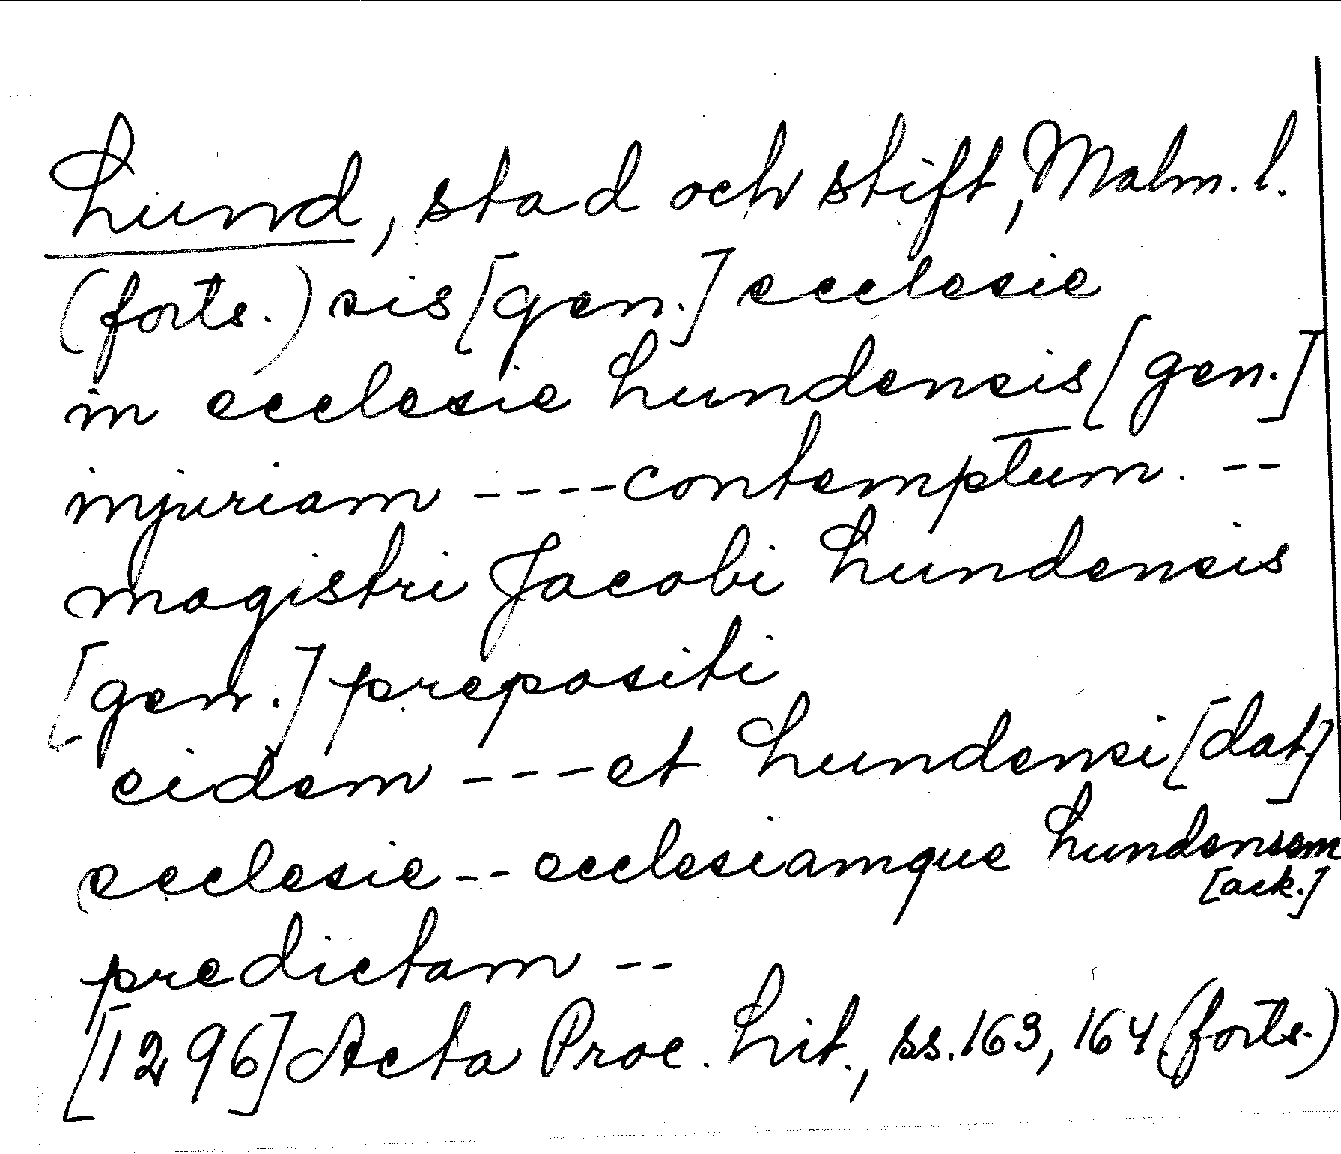 Lund, stad och stift, Malm. l.
(forts.) sis [gen.] ecclesie
in ecclesie Lundensis [gen.]
injuriam ---- contemptum. --
magistri Jacobi Lundensis
[gen.] prepositi
eidem --- et Lundensi [dat]
ecclesie -- ecclesiamque Lundensem
[ack.]
predictam --
[1296] Acta Proc. Lit., ss. 163, 164 (forts.)